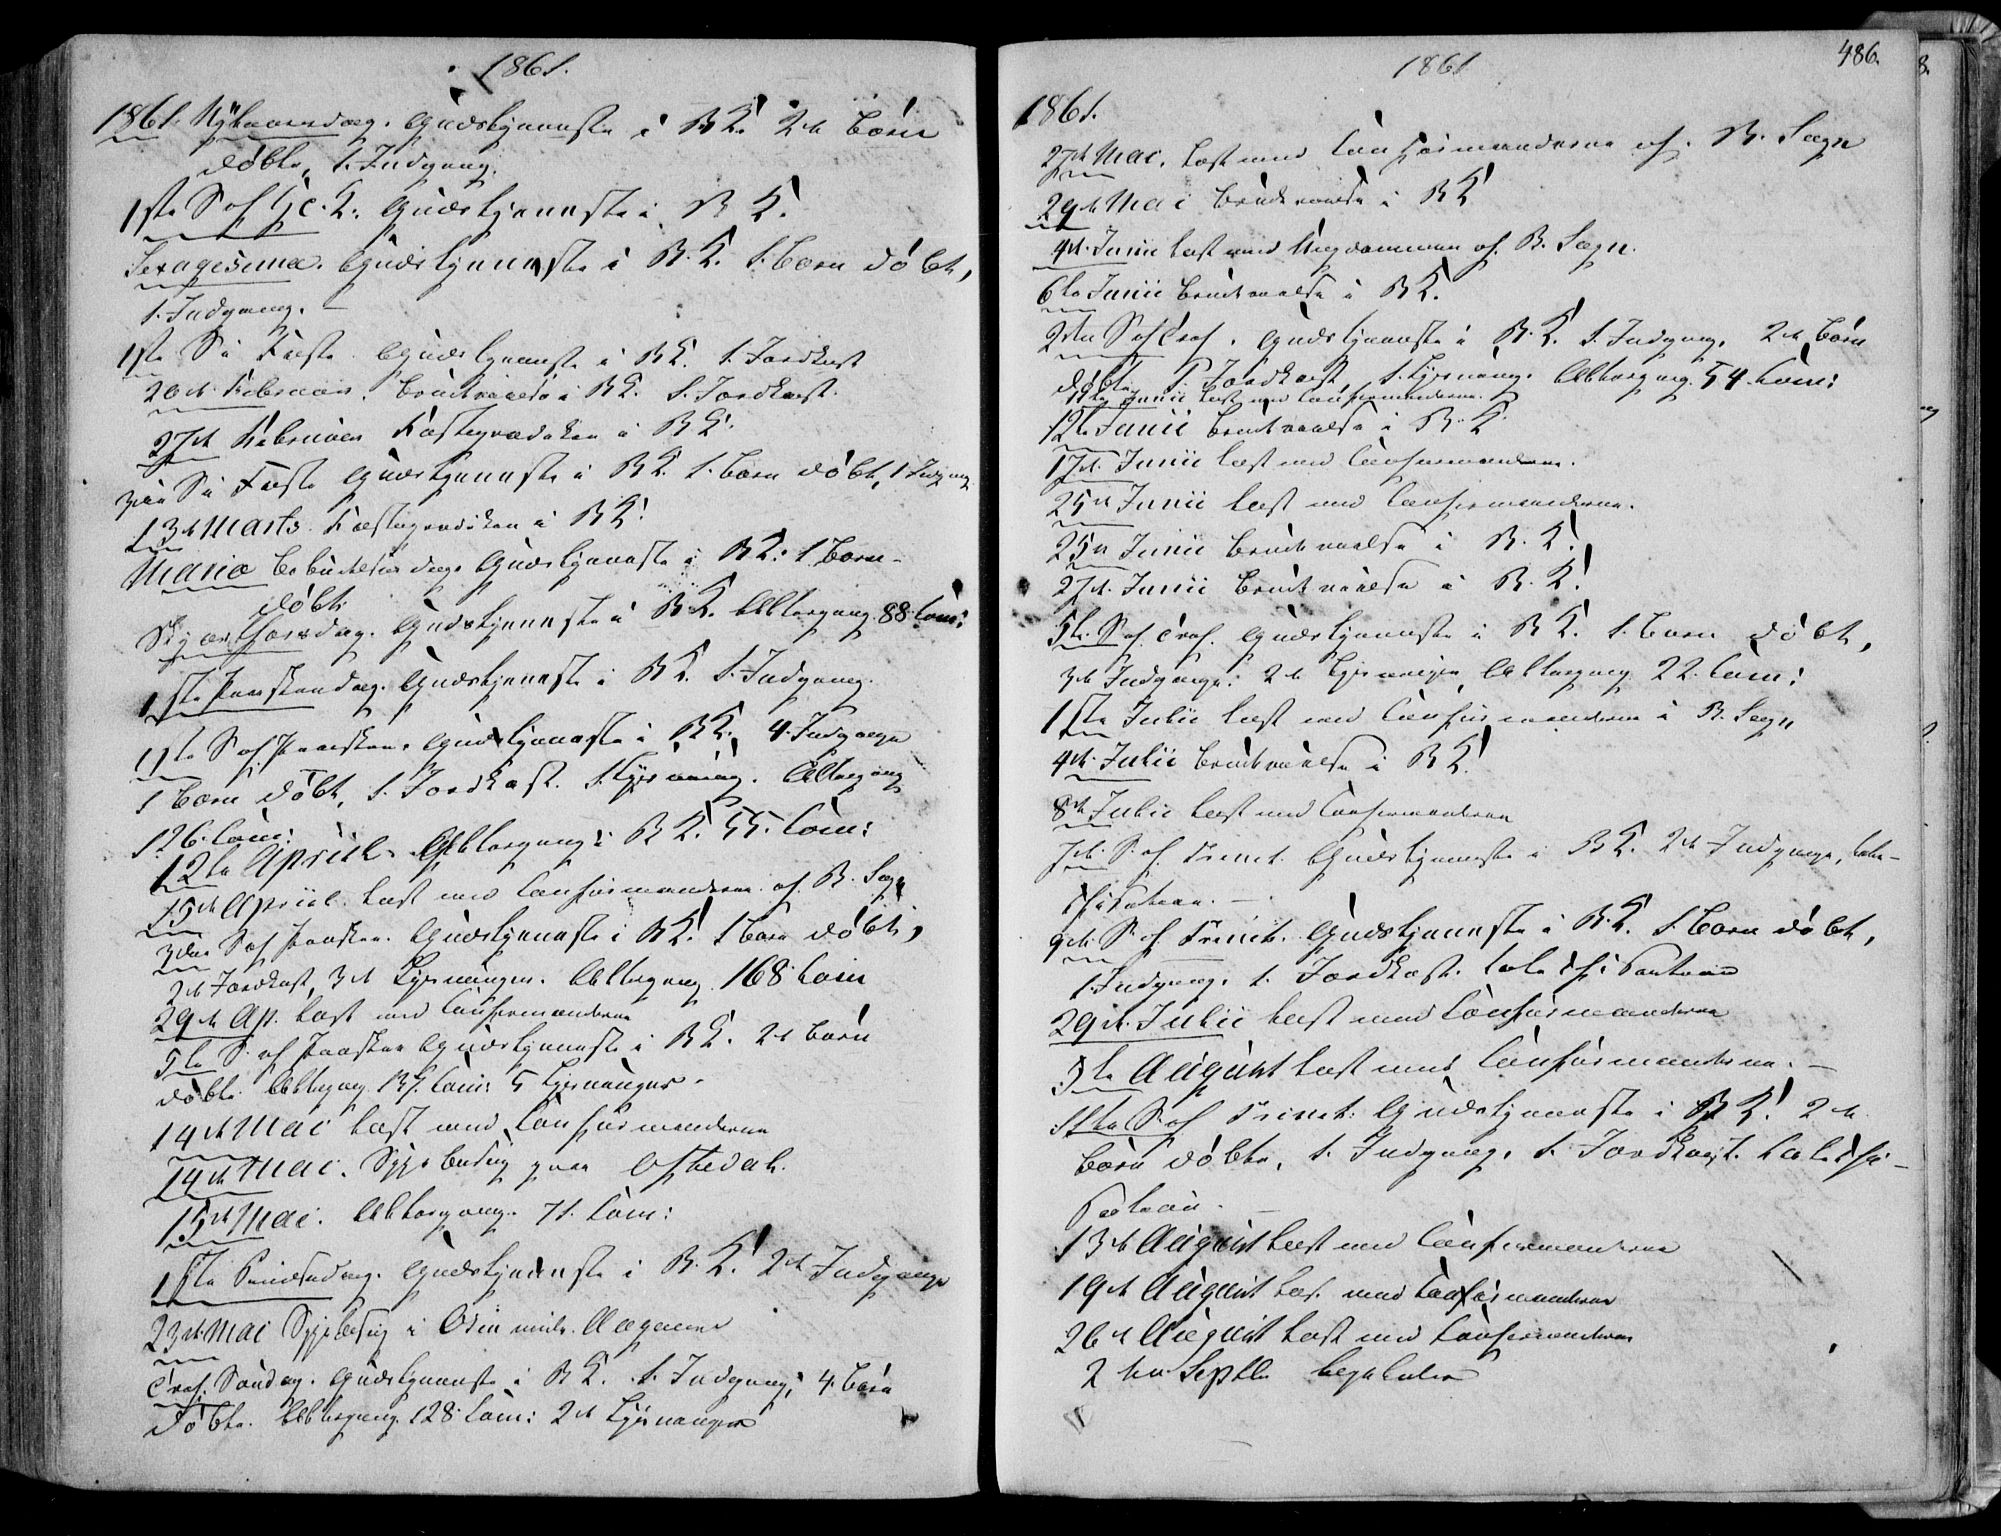 1861.
1861 Nytaarsdag. Gudstjenneste i B K. 2de Børn
døbte, 1. Indgang.
1ste S. ef. H: 3: K: Gudstjenneste i B K.
Sexagesima. Gudstjenneste i B. K. 1. Barn døbt,
1. Indgang. –
1ste S. i Faste. Gudstjenneste i B K. 1. Jordkast
20de Februar. Brudevielse i B K. 1. Jordkast.
27de Februar Fasteprædiken i B K.
3die S. i Faste Gudstjenneste i B K. 1. Barn døbt, 1 Indgang
13de Marts. Fasteprædiken i B K.
Mariæ Bebudelses dag. Gudstjenneste i B K. 1. Barn
døbt.
Skjærthorsdag. Gudstjenneste i B K. Altergang 88 Com:
1ste Paaskedag. Gudstjenneste i B K. 1. Indgang.
1ste S. ef. Paaske. Gudstjenneste i B K. 4. Indgange
1 Barn døbt, 1. Jordkast. 1. Kjerning. Altergang
126. Com:
12te April. Altergang i B K. 55. Com:
15de April. Læst med Confirmanderne af B. Sogn
3die S. ef. Paaske. Gudstjenneste i B K. 1 Barn døbt,
2de Jordkast, 3de Kjerninger. Altergang 168 Com
29de Ap. Læst med Confirmanderne
5te S. ef. Paaske Gudstjenneste i B K. 2de Børn
døbte. Altergang 137. Com: 5 Kjerninger.
14de Mai Læst med Confirmanderne
14de Mai. Sygebesøg paa Oftedal.
15de Mai. Altergang. 71. Com:
1ste Pindsedag. Gudstjenneste i B. K. 2de Indgange
23de Mai Sygebesøg i Osen
Tref. Søndag. Gudstjenneste i B K. 1. Indgang, 4. Børn
døbte. Altergang. 128. Com: 2de Kjerninger
1861
486.
1861.
27de Mai. Læst med Confirmanderne af B. Sogn
29de Mai Brudevielse i B K
4de Junii Læst med Ungdommen af B. Sogn.
6te Junii Brudevielse i B K.
2den S. ef Tref. Gudstjenneste i B. K. 1. Indgang, 2de Børn
døbte, 1. Jordkast, 1. Kjerning. Altergang. 54 Com:
Junii Læst med Confirmanderne.
12te Junii Brudevielse i B. K.
17de Junii Læst med Confirmanderne.
25de Junii Læst med Confirmanderne.
25de Junii Brudevielse i B. K.
27de Junii Brudevielse i B. K.
5te S. ef. Tref. Gudstjenneste i B K. 1. Barn døbt,
3de Indgange. 2de Kjerninger, Altergang 22. Com:
1ste Julii Læst med Confirmanderne i B. Sogn
4de Julii Brudevielse i B K.
8de Julii Læst med Confirmanderne
7de S. ef. Trinit. Gudstjenneste i B K. 2de Indgange, Cate-
chisation. –
9de S. ef Trinit. Gudstjenneste i B. K. 1. Barn døbt,
1. Indgang. 1. Jordkast. Catechisation
29de Julii Læst med Confirmanderne
5te August Læst med Confirmanderne. –
11te S. ef Trinit. Gudstjenneste i B K. 2de
Børn døbte, 1. Indgang. 1. Jordkast. Catechi-
sation. –
13de August Læst med Confirmanderne
19de August Læst med Confirmanderne
26de August Læst med Confirmanderne
2den Septbr